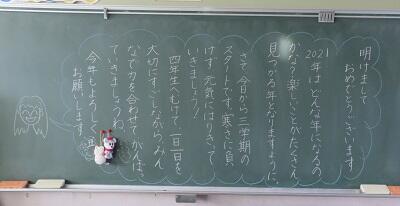 明けまして
おめでとうございます
2021年は どんな年になるの
かな？楽しいことがたくさん
見つかる年となりますように。
さて、今日から三学期の
スタートです。寒さに負
けず、元気にはりきって
いきましょう！
四年生へむけて一日一日を
大切にすごしながら、みん
なで力を合わせて がんばっ
ていきましょうね。
今年もよろしく
お願いします